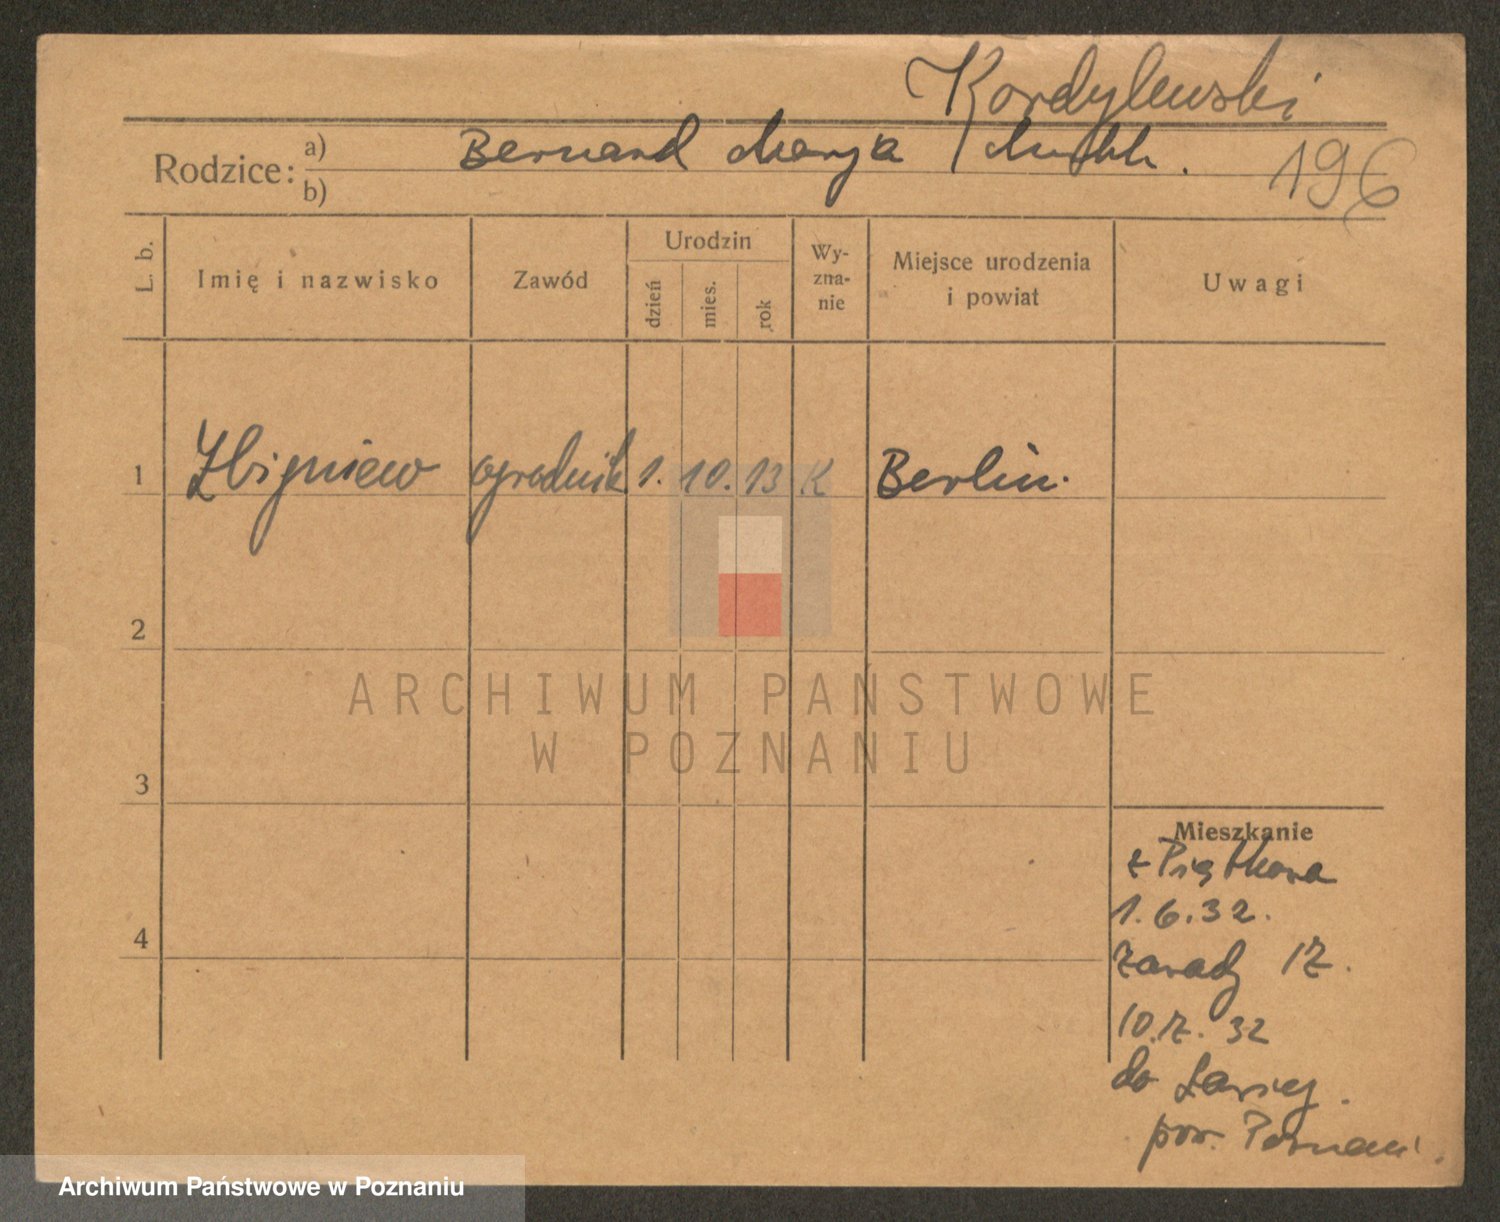 Kordylewski
Rodzice: a) Bernard Marja
b)
196
L. b.
Imię i nazwisko
Zawód
Urodzin
dzień
mies.
rok
Wy-
zna-
nie
Miejsce urodzenia
i powiat
Uwagi
1 Zbigniew ogrodnik 1. 10. 13 K Berlin.
2
3
4
Mieszkanie
z Piątkowa
1.6.32.
Zawady
32
do
pow. Poznań
ARCHIWUM PAŃSTWOWE
W POZNANIU
Archiwum Państwowe w Poznaniu